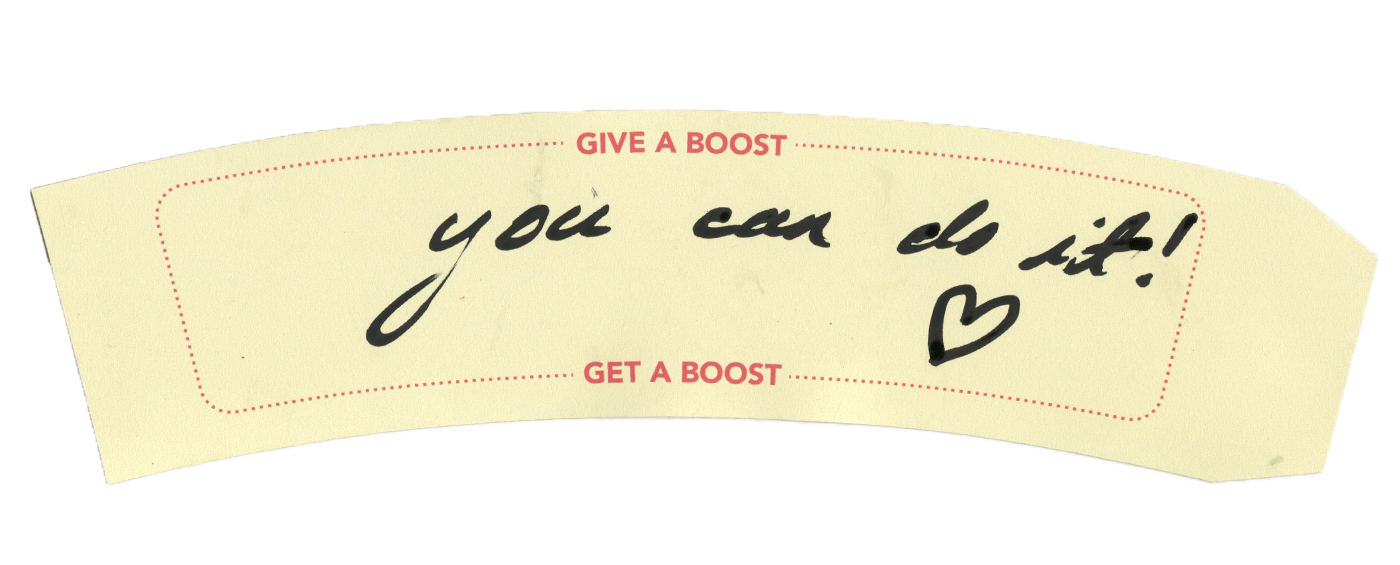 GIVE A BOOST
you can do it!
GET A BOOST